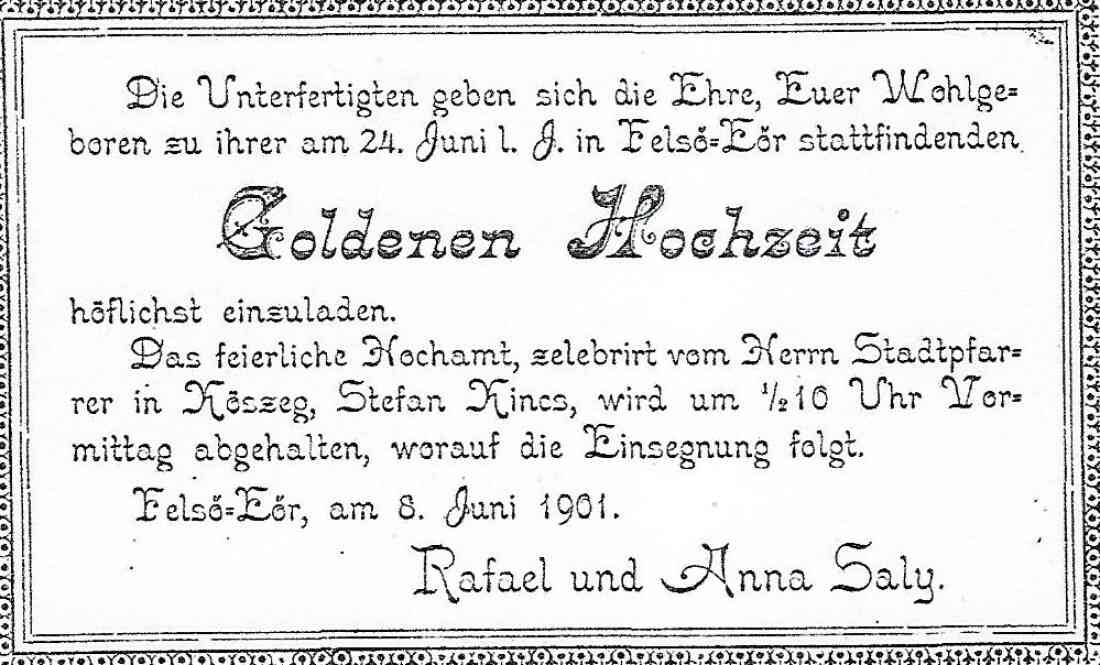 Die Unterfertigten geben sich die Ehre, Euer Wohlge=
boren zu ihrer am 24. Juni l. J. in Felső=Eőr stattfindenden
Goldenen Hochzeit
höflichst einzuladen.
Das feierliche Hochamt, zelebrirt vom Herrn Stadtpfar=
rer in Köszeg, Stefan Kincs, wird um ½10 Uhr Vor=
mittag abgehalten, worauf die Einsegnung folgt.
Felső=Eőr, am 8. Juni 1901.
Rafael und Anna Saly.